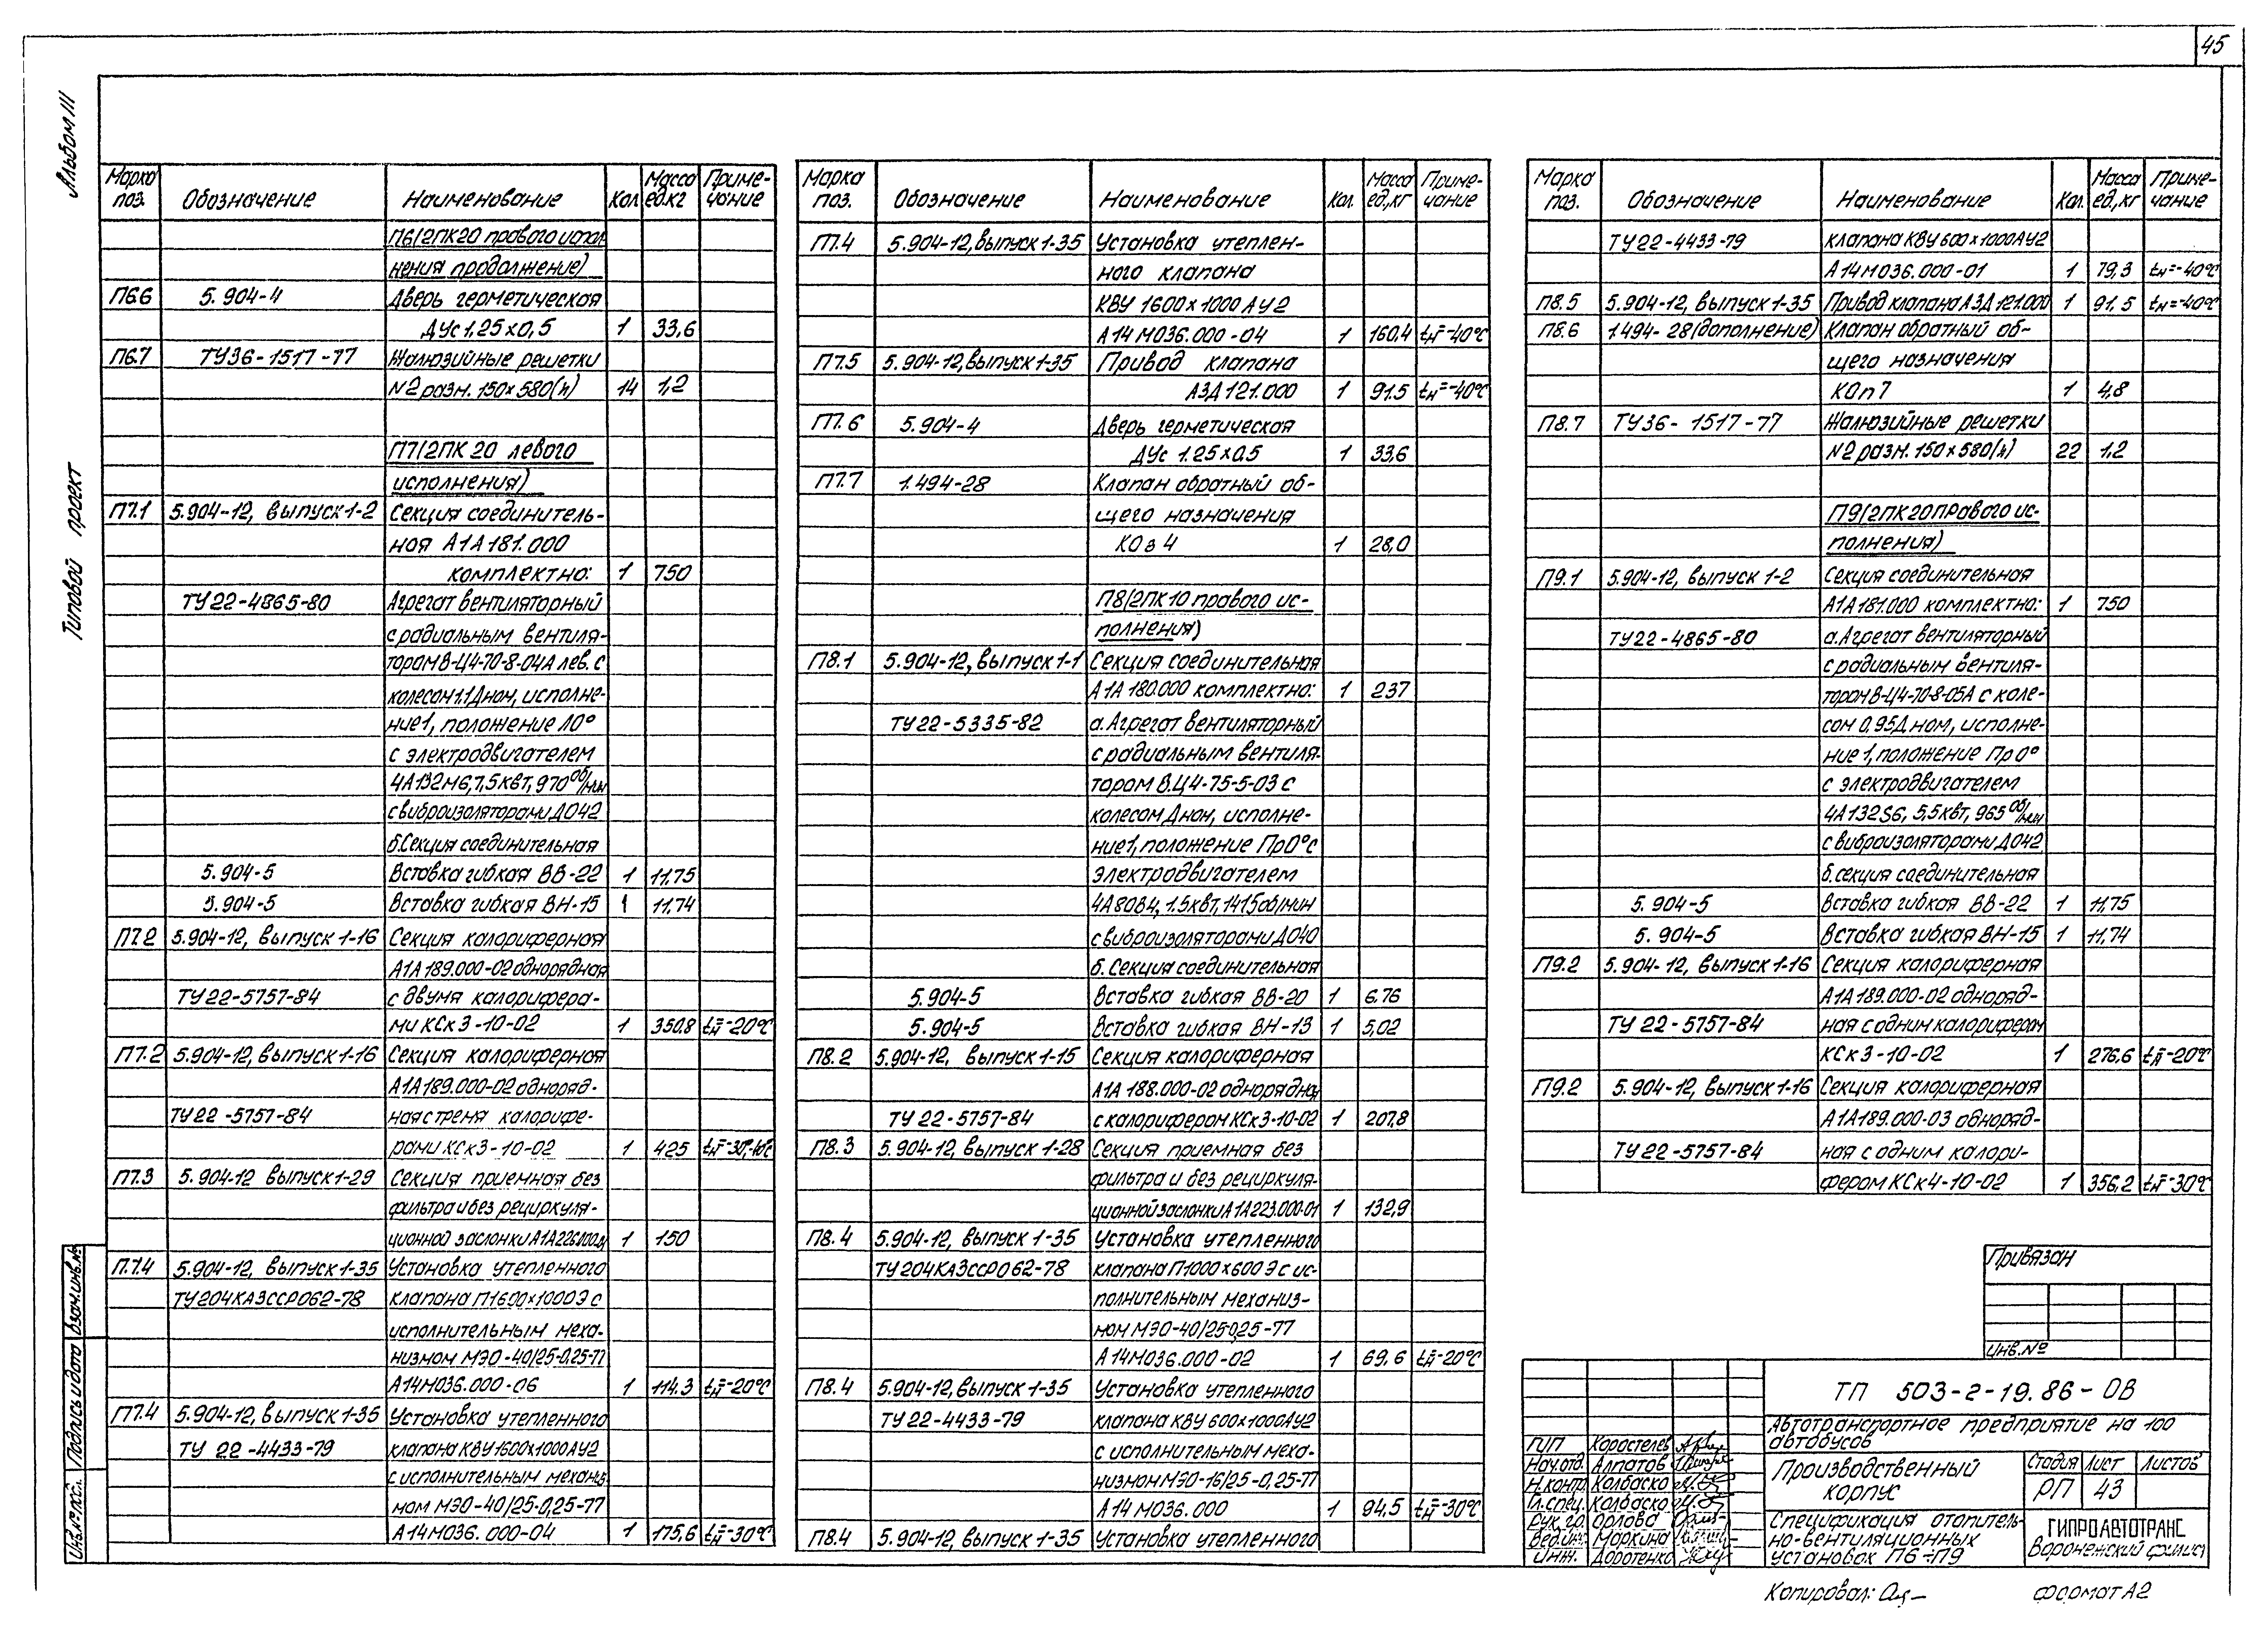 45
Альбом III
Типовой проект
Марка поз. Обозначение Наименование Кол Масса ед.кг Примечание
П6(2ПК20 правого испол-
нения продолжение)
П6.6 5.904-4 Дверь герметическая
ДУс 1,25х0,5 1 33,6
П6.7 ТУ36-1517-77 Жалюзийные решетки
N2 разм. 150х580(н) 14 1,2
П7(2ПК 20 левого
исполнения)
П7.1 5.904-12, выпуск 1-2 Секция соединитель-
ная А1А181.000
комплектно: 1 750
ТУ22-4865-80 Агрегат вентиляторный
с радиальным вентиля-
тором В-Ц4-70-8-04А лев. с
колесом 1.1 Дном, исполне-
ние 1, положение Л0°
с электродвигателем
4А132М6, 7,5 квт, 970 об/мин
с виброизоляторами Д042
б. Секция соединительная
5.904-5 Вставка гибкая ВВ-22 1 11,75
5.904-5 Вставка гибкая ВН-15 1 11,74
П7.2 5.904-12, выпуск 1-16 Секция калориферная
А1А189.000-02 однорядная
ТУ22-5757-84 с двумя калорифера-
ми КСк 3-10-02 1 350.8 tн=-20°С
П7.2 5.904-12, выпуск 1-16 Секция калориферная
А1А189.000-02 однoряд-
ТУ22-5757-84 ная с тремя калорифе-
рами КСк3-10-02 1 425 tн=-30°,-40°С
П7.3 5.904-12 выпуск 1-29 Секция приемная без
фильтра и без рециркуля-
ционной заслонки 1 150
П.7.4 5.904-12, выпуск 1-35 Установка утепленного
ТУ204КАЗССР062-78 клапана П1600х1000Э с
исполнительным меха-
низмом МЭО-40/25-0,25-77
А14М036.000-06 1 114.3 tн=-20°С
П7.4 5.904-12, выпуск 1-35 Установка утепленного
ТУ 22-4433-79 клапана КВУ 1600х1000 АУ2
с исполнительным механиз-
мом МЭО-40/25-0,25-77
А14М036.000-04 1 175,6 tн=-30°С
Марка поз. Обозначение Наименование Кол. Масса ед,кг Примечание
П7.4 5.904-12, выпуск 1-35 Установка утеплен-
ного клапана
КВУ 1600х1000 АУ2
А14М036.000-04 1 160,4 tн=-40°С
П7.5 5.904-12, выпуск 1-35 Привод клапана
АЗД 121.000 1 91.5 tн=-40°С
П7.6 5.904-4 Дверь герметическая
ДУс 1.25х0.5 1 33,6
П7.7 1.494-28 Клапан обратный об-
щего назначения
КОз 4 1 28,0
П8(2ПК10 правого ис-
полнения)
П8.1 5.904-12, выпуск 1-1 Секция соединительная
А1А 180.000 комплектно: 1 237
ТУ22-5335-82 а. Агрегат вентиляторный
с радиальным вентиля-
тором В.Ц4-75-5-03 с
колесом Дном, исполне-
ние 1, положение Пр0° с
электродвигателем
4А80В4, 1.5квт, 1415 об/мин
с виброизоляторами Д040
б. Секция соединительная
5.904-5 Вставка гибкая ВВ-20 1 6.76
5.904-5 Вставка гибкая ВН-13 1 5,02
П8.2 5.904-12, выпуск 1-15 Секция калориферная
А1А 188.000-02 однорядная
ТУ 22-5757-84 с калорифером КСк3-10-02 1 207,8
П8.3 5.904-12, выпуск 1-28 Секция приемная без
фильтра и без рециркуля-
ционной заслонки А1А223.000-01 1 132,9
П8.4 5.904-12, выпуск 1-35 Установка утепленного
ТУ204КАЗССР062-78 клапана П1000х600 Э с ис-
полнительным механиз-
мом МЭО-40/25-0,25-77
А14М036.000-02 1 69.6 tн=-20°С
П8.4 5.904-12, выпуск 1-35 Установка утепленного
ТУ22-4433-79 клапана КВУ 600х1000АУ2
с исполнительным меха-
низмом МЭО-16/25-0,25-77
А14М036.000 1 94.5 tн=-30°С
П8.4 5.904-12, выпуск 1-35 Установка утепленного
Марка поз. Обозначение Наименование Кол. Масса ед,кг Примечание
ТУ22-4433-79 клапана КВУ 600х1000АУ2
А14М036.000-01 1 79,3 tн=-40°С
П8.5 5.904-12, выпуск 1-35 Привод клапана АЗД 121.000 1 91.5 tн=-40°С
П8.6 1.494-28(дополнение) Клапан обратный об-
щего назначения
КОп 7 1 4,8
П8.7 ТУ36-1517-77 Жалюзийные решетки
N2 разм. 150х580(н) 22 1,2
П9(2ПК20 правого ис-
полнения)
П9.1 5.904-12, выпуск 1-2 Секция соединительная
А1А181.000 комплектно: 1 750
ТУ22-4865-80 а. Агрегат вентиляторный
с радиальным вентиля-
тором В-Ц4-70-8-05А с коле-
сом 0,95Д ном, исполне-
ние 1, положение Пр0°
с электродвигателем
4А132S6, 5,5квт, 965 об/мин
с виброизоляторами Д042
б. секция соединительная
5.904-5 Вставка гибкая ВВ-22 1 11,75
5.904-5 Вставка гибкая ВН-15 1 11,74
П9.2 5.904-12, выпуск 1-16 Секция калориферная
А1А189.000-02 одноряд-
ТУ 22-5757-84 ная с одним калорифером
КСк3-10-02 1 276,6 tн=-20°С
П9.2 5.904-12, выпуск 1-16 Секция калориферная
А1А189.000-03 одноряд-
ТУ22-5757-84 ная с одним калори-
фером КСк4-10-02 1 356,2 tн=-30°С
Привязан
Инв.№
ТП 503-2-19.86-ОВ
Автотранспортное предприятие на 100
автобусов
ГИП Коростелев
Нач.отд. Алпатов
Н.контр. Колбаско
Гл.спец. Колбаско
Рук.гр. Орлова
Вед.инж. Маркина
Инж. Доротенко
Производственный
корпус
Стадия Лист Листов
РП 43
Спецификация отопитель-
но-вентиляционных
установок П6÷П9
ГИПРОАВТОТРАНС
Воронежский филиал
Инв.№ подл. Подпись и дата Взам.инв.№
Копировал:
формат А2